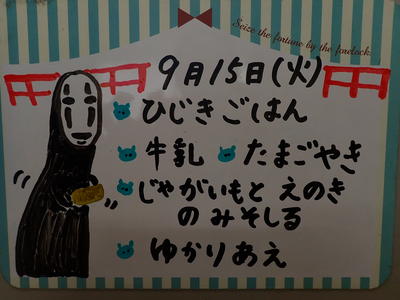 Seize the fortune by the forelock.
9月15日(火)
ひじきごはん
牛乳 たまごやき
じゃがいもと えのき
のみそしる
ゆかりあえ